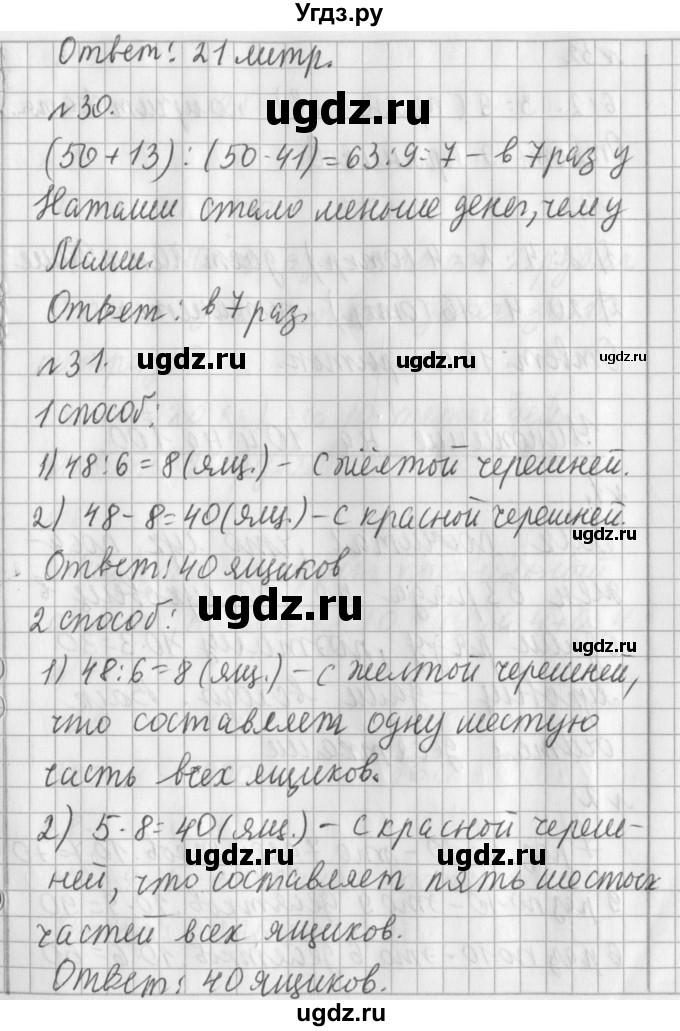 Угдз.ру
Ответ: 21 метр.
ugdz.ru
№30.
(50+13) : (50-41)=63:9=7 – в 7 раз у
Наташи стало меньше денег, чем у
Маши.
Ответ: в 7 раз.
ugdz.ru ugdz.ru ugdz.ru
№31.
1 способ:
1) 48:6=8(ящ.) – с жёлтой черешней.
2) 48-8=40(ящ.) – с красной черешней.
ugdz.ru
Ответ: 40 ящиков
ugdz.ru
2 способ:
ugdz.ru
1) 48:6=8(ящ.) – с желтой черешней,
что составляет одну шестую
часть всех ящиков.
2) 5·8=40(ящ.) – с красной череш-
ugdz.ru ugdz.ru
ней, что составляет пять шестых
частей всех ящиков.
Ответ: 40 ящиков.
ugdz.ru